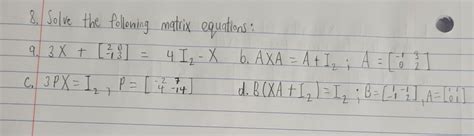 8. Solve the following matrix equations:
a. 3X + [2 0; -1 3] = 4I₂ - X  b. AXA = A + I₂ ; A = [-1 3; 0 2]
c. 3PX = I₂ , P = [-2 7; 4 -14]  d. B(XA + I₂) = I₂ ; B = [1 -1; -1 2], A = [1 1; 0 1]